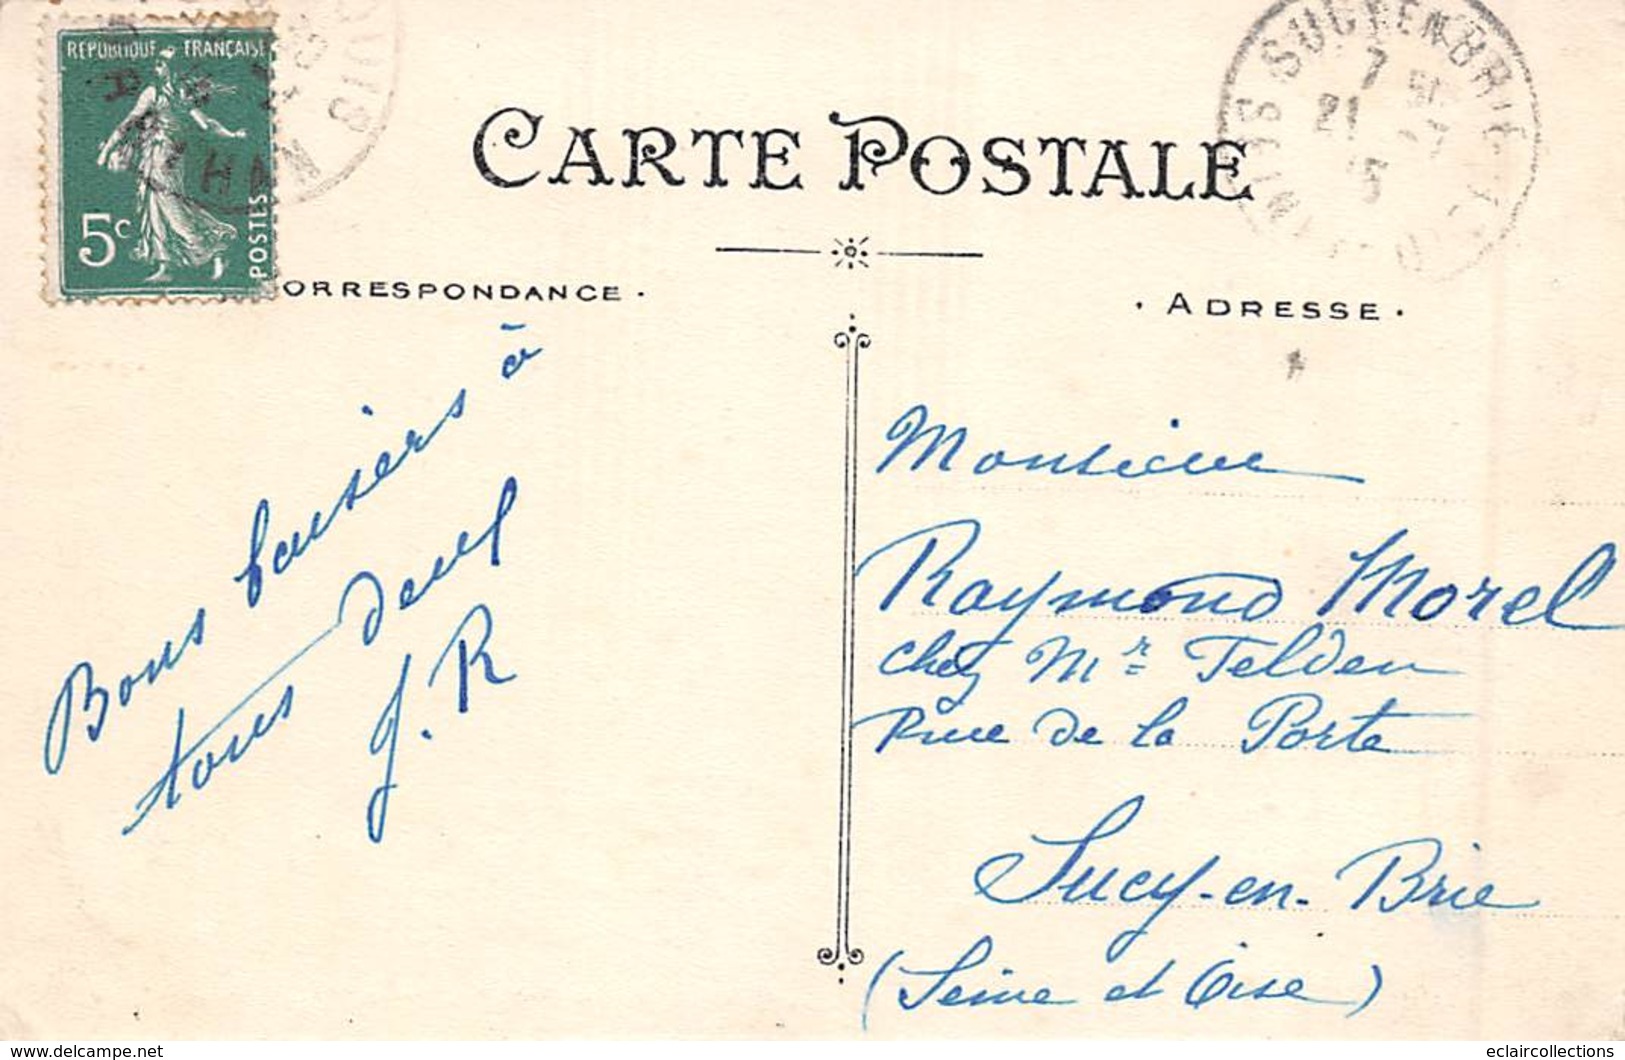 RÉPUBLIQUE FRANÇAISE
5c
POSTES
CARTE POSTALE
SUCY EN BRIE
7
21
15
ORRESPONDANCE.
. ADRESSE.
Bons baisers à
tous deux
J. R
Monsieur
Raymond Morel
chez Mr Telden
Rue de la Porte
Sucy-en-Brie
(Seine et Oise)
delcampe.net
eclaircollections